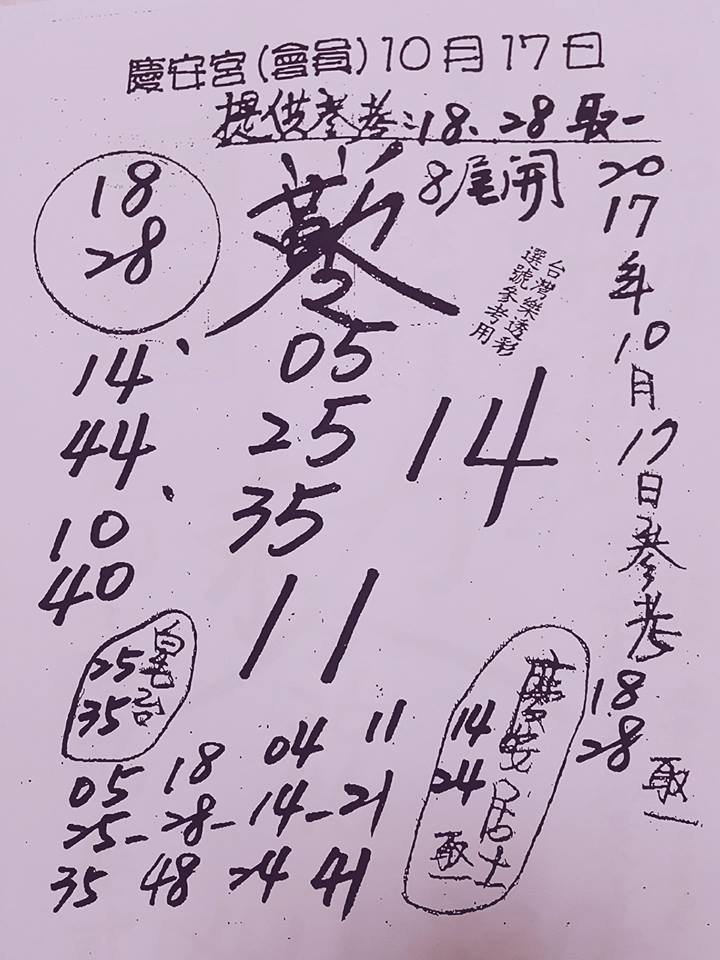 慶安宮(會員)10月17日
提供參考:18、28取一
18
28
8尾開
2017年10月17日參考
18
28
取一
台灣樂透彩
選號參考用
14、
44
10、
40
05
25
35
14
11
皇台
25
35
慶安居士
14
24
取一
05 18 04 11
25-28-14-21
35 48 24 41